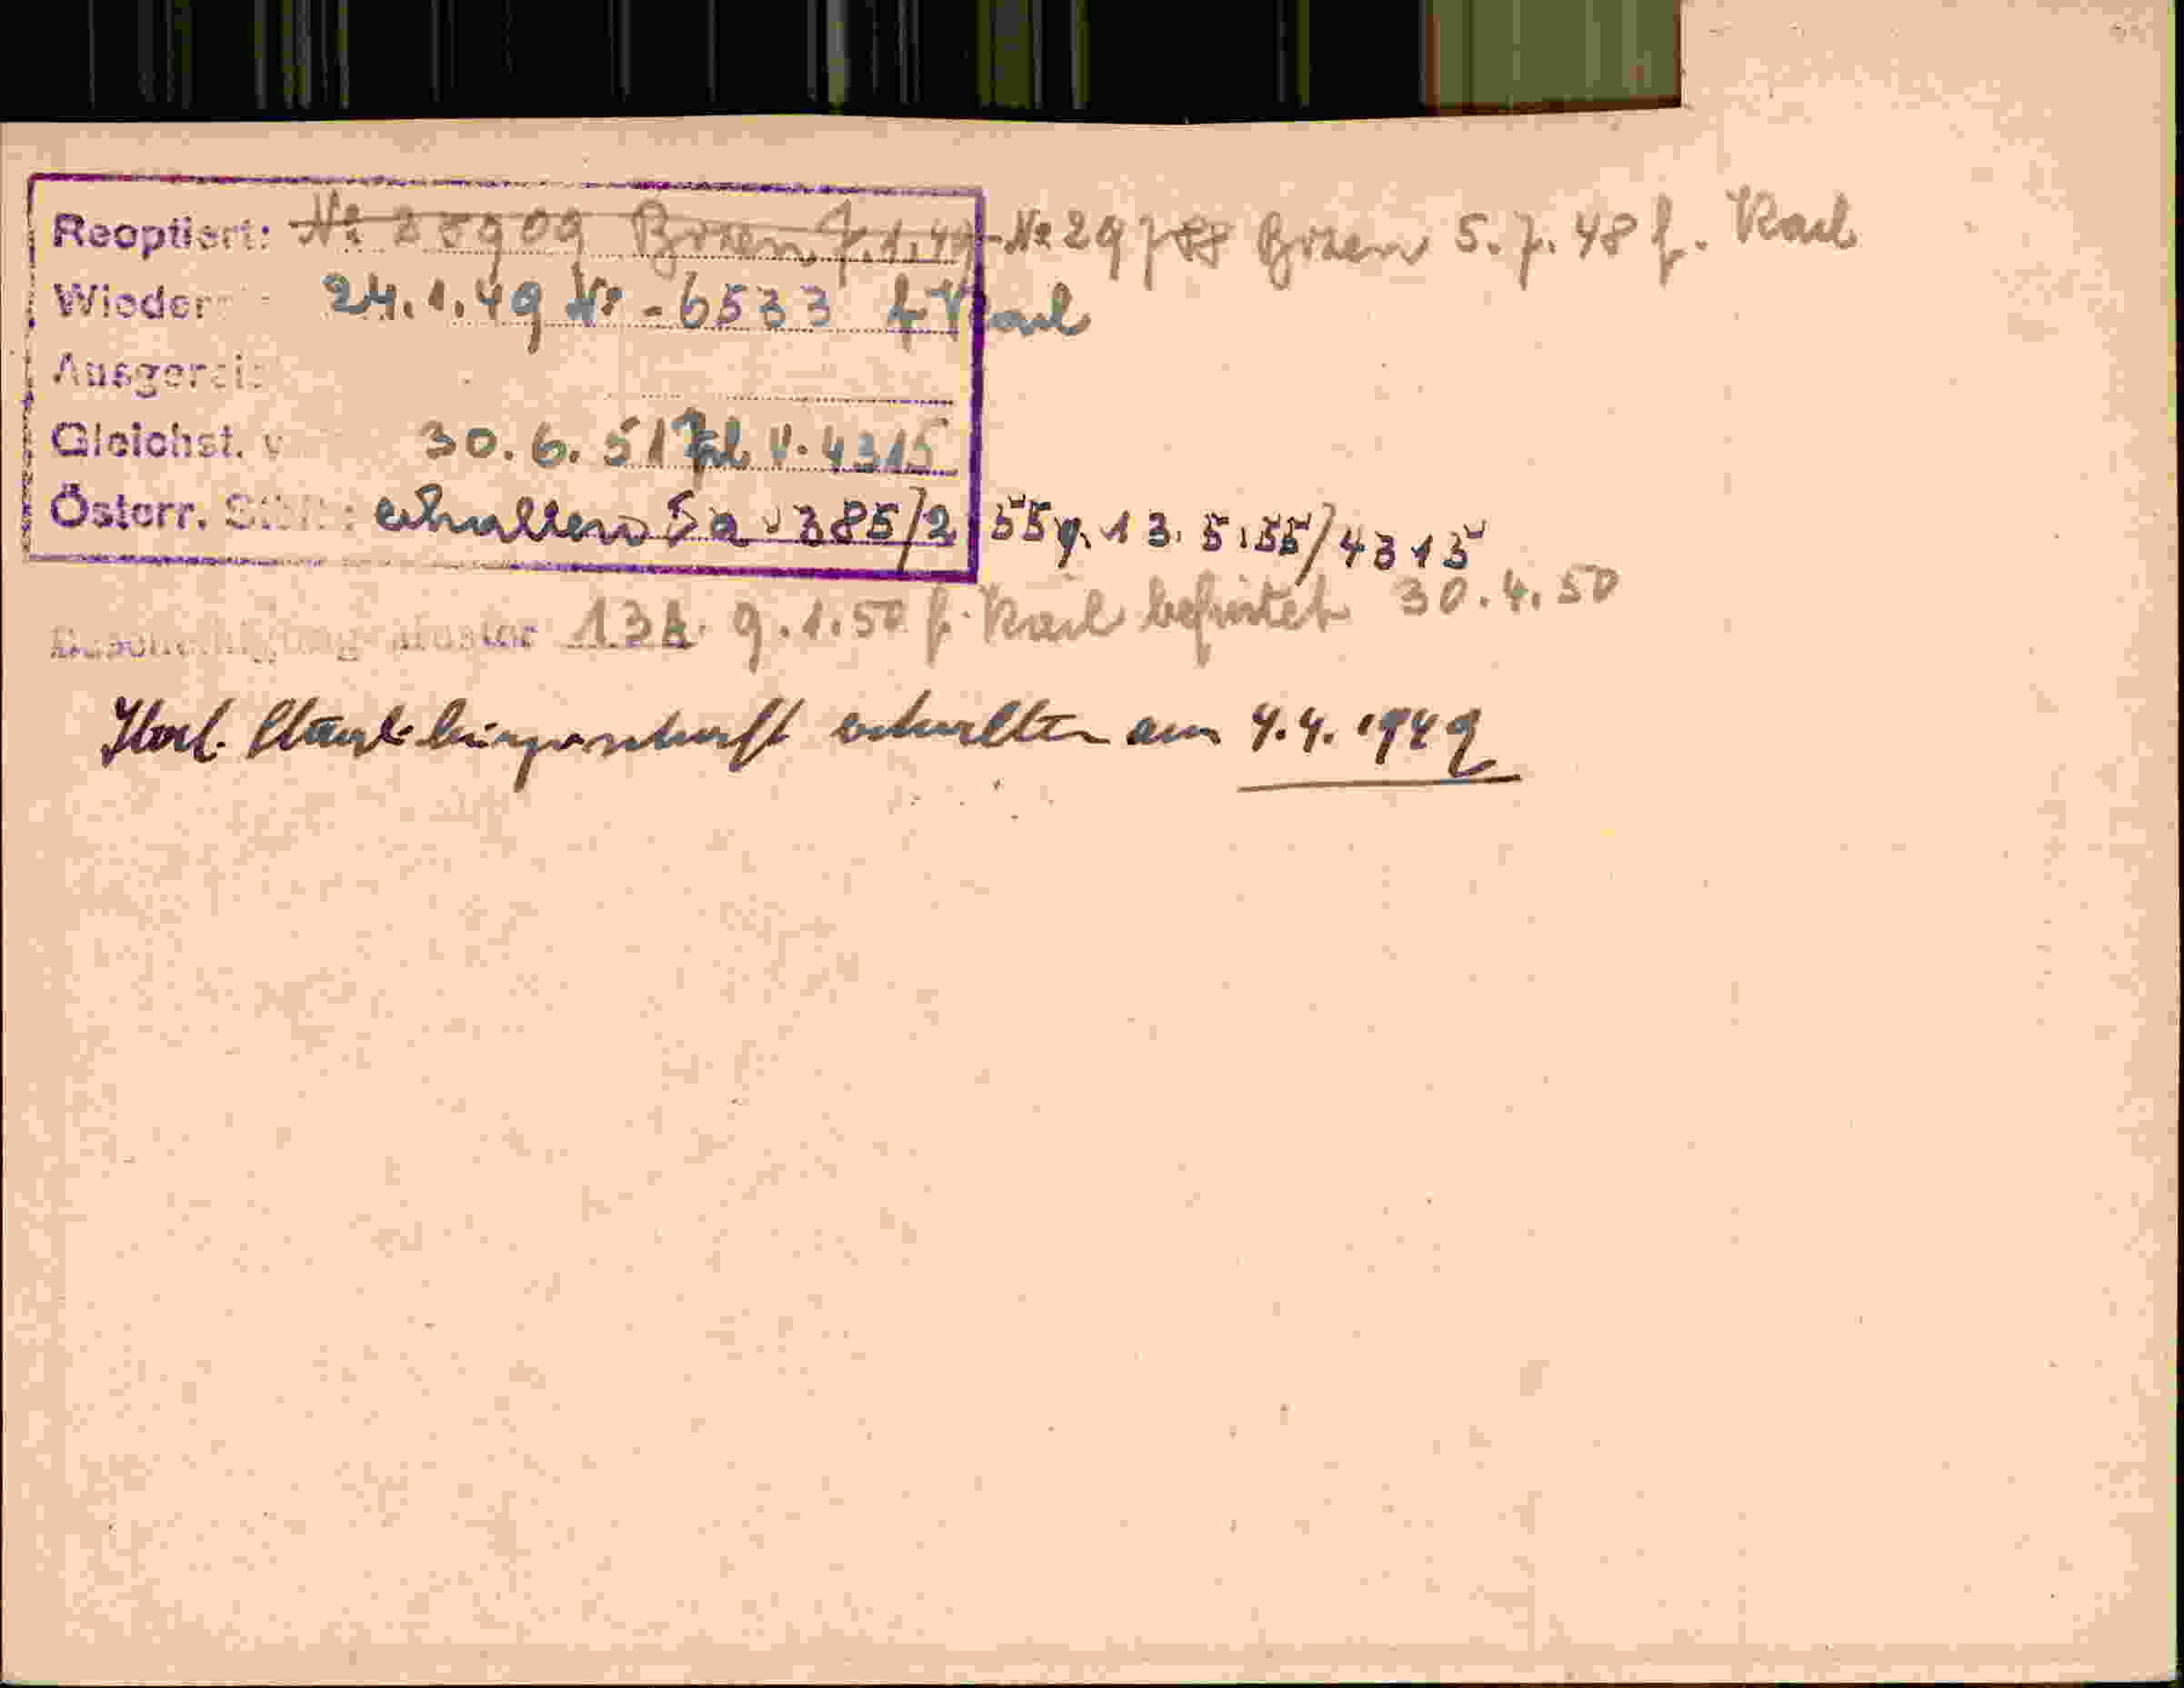 Reoptiert: № 25909 Bozen 7.1.49 - № 29788 Bozen 5.7.48 f. Karl
Wieder 24.1.49 Nr - 6533 f Karl
Ausgereis
Gleichst. v 30.6.51 Zl V. 4315
Österr. erhalten 5a - 385/2 55 v. 13.5.55/4315
134. 9.1.50 f. Karl befristet 30.4.50
Ital. Staatsbürgerschaft erhalten am 4.4.1949